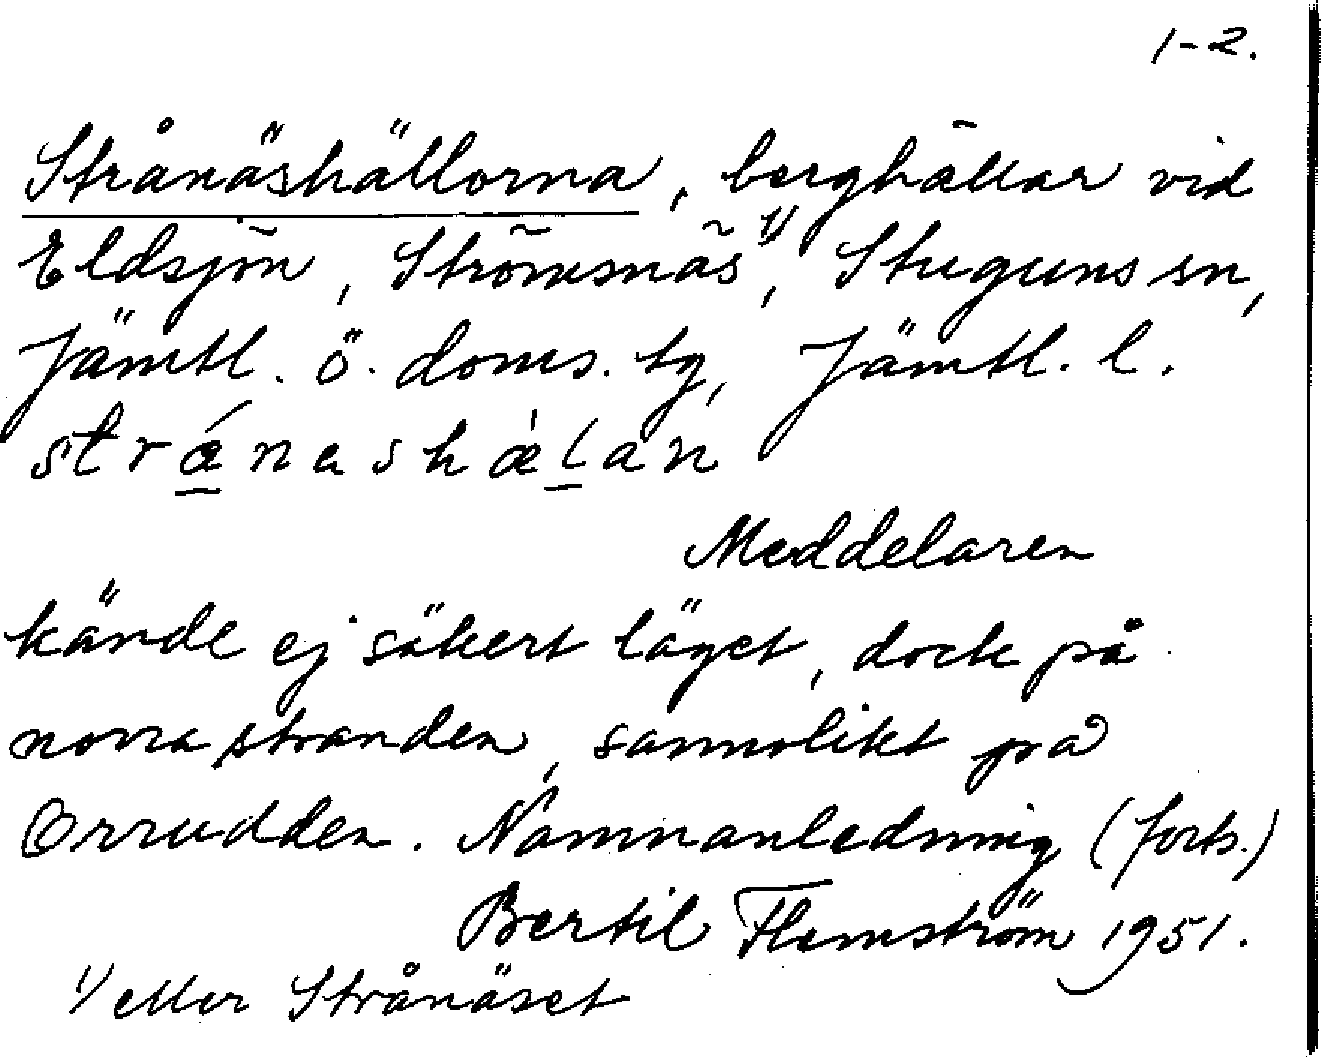 1-2.
Strånäshällorna, berghällar vid
Eldsjön, Strömsnäs 1), Stuguns sn,
Jämtl. ö. doms. tg, Jämtl. l.
strǽnashæ̀lan
Meddelaren
kände ej säkert läget, dock på
norra stranden, sannolikt på
Orrudden. Namnanledning (forts.)
Bertil Flemström 1951.
1) eller Strånäset